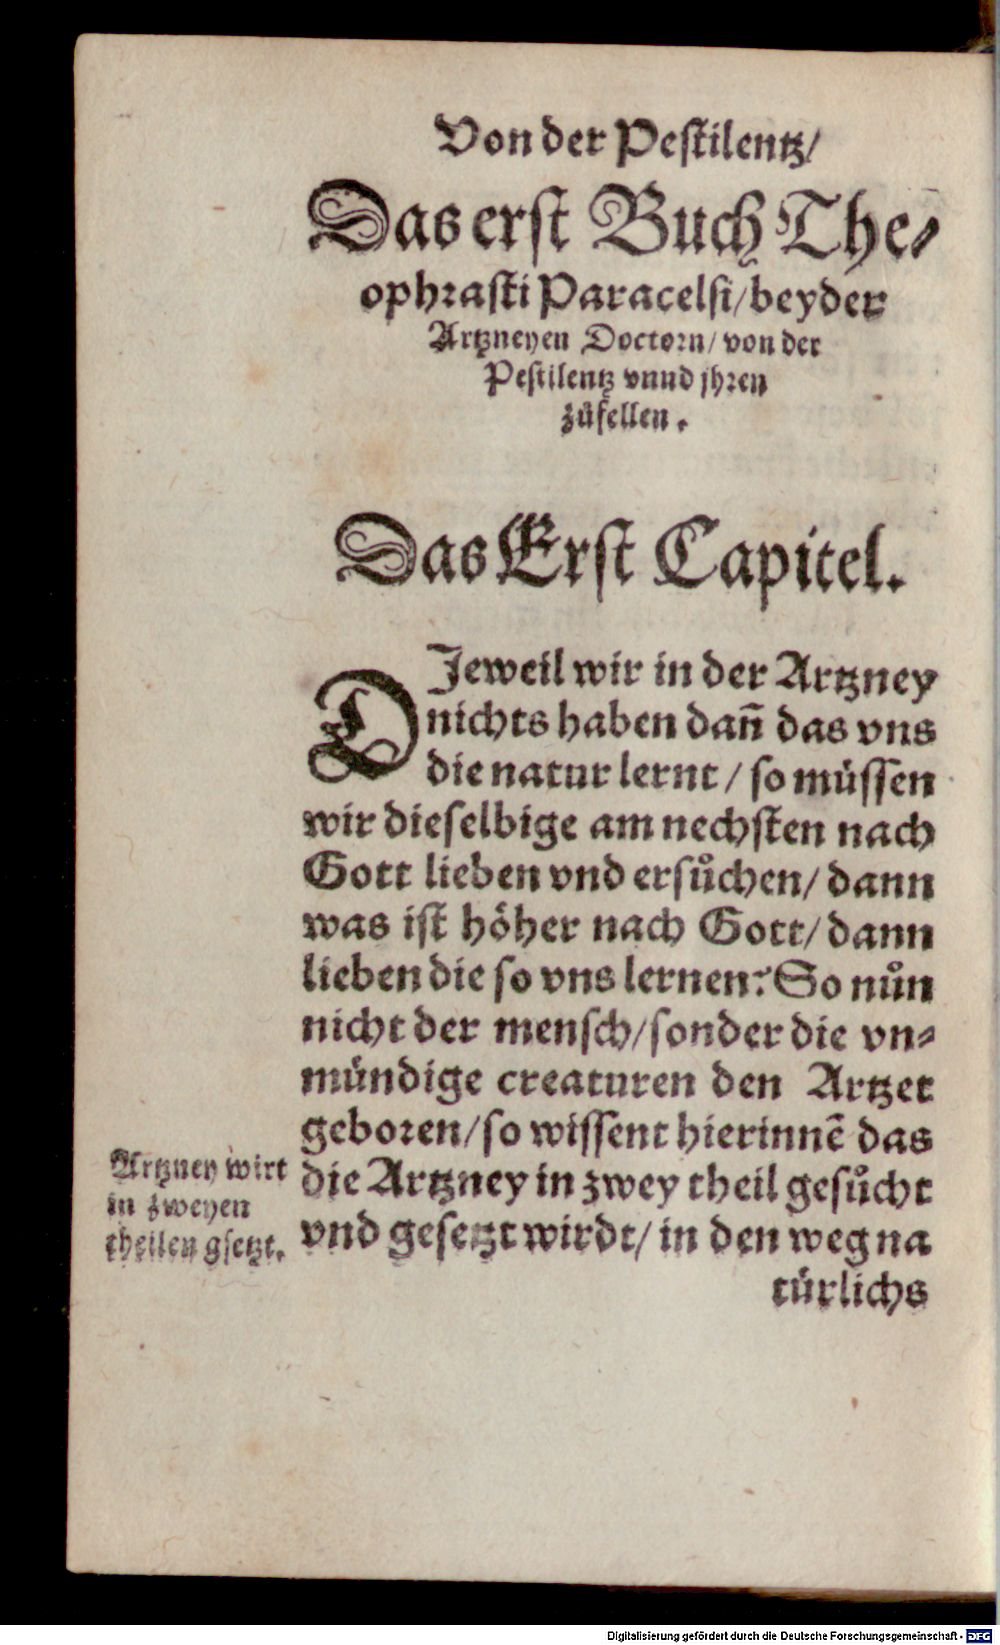 Von der Pestilentz/
Das erst Buch The⸗
ophrasti Paracelsi/beyder
Artzneyen Doctorn/ von der
Pestilentz vnnd jhren
zůfellen.
Das Erst Capitel.
DJeweil wir in der Artzney
nichts haben dañ das vns
die natur lernt / so müssen
wir dieselbige am nechsten nach
Gott lieben vnd ersůchen/ dann
was ist höher nach Gott/ dann
lieben die so vns lernen? So nůn
nicht der mensch/sonder die vn⸗
mündige creaturen den Artzet
geboren/so wissent hierinnẽ das
die Artzney in zwey theil gesůcht
vnd gesetzt wirdt/ in den weg na
türlichs
Artzney wirt
in zweyen
theilen gsetzt.
Digitalisierung gefördert durch die Deutsche Forschungsgemeinschaft - DFG